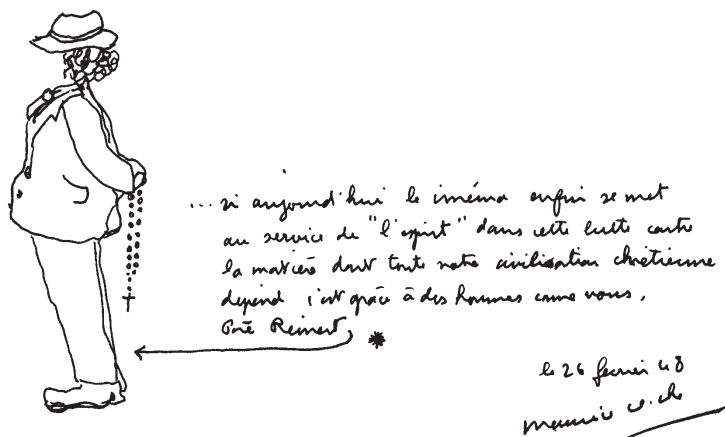 ... si aujourd'hui le cinéma enfin se met
au service de "l'esprit" dans cette lutte contre
la matière dont toute notre civilisation chrétienne
depend c'est grâce à des hommes comme vous,
Reinert *
le 26 fevrier 48